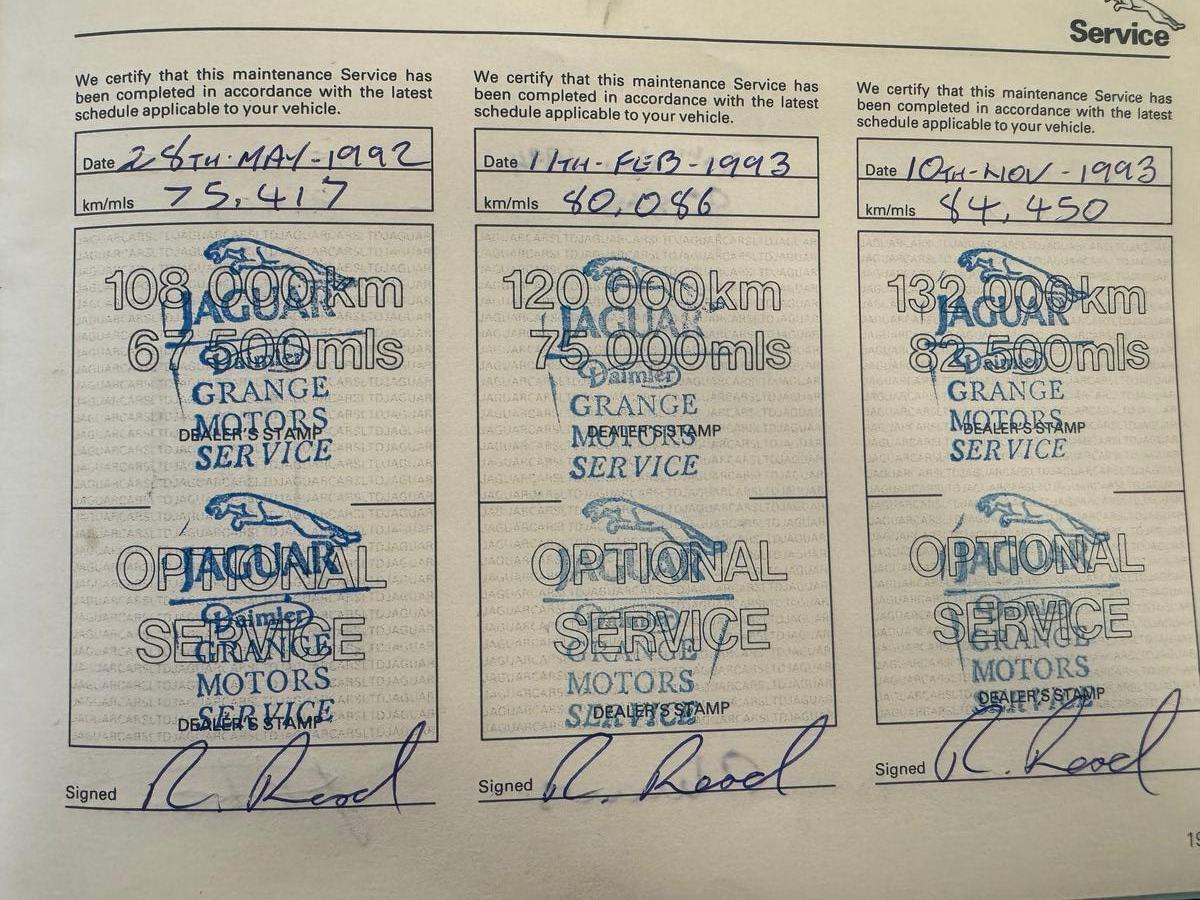 Service
We certify that this maintenance Service has
been completed in accordance with the latest
schedule applicable to your vehicle.
Date 28TH-MAY-1992
km/mls 75,417
108 000 km
JAGUAR
67 500 mls
Daimler
GRANGE
MOTORS
DEALER'S STAMP
SERVICE
OPTIONAL
JAGUAR
Daimler
SERVICE
GRANGE
MOTORS
SERVICE
DEALER'S STAMP
Signed R. Read
We certify that this maintenance Service has
been completed in accordance with the latest
schedule applicable to your vehicle.
Date 11TH-FEB-1993
km/mls 80,086
120 000 km
JAGUAR
75 000 mls
Daimler
GRANGE
MOTORS
DEALER'S STAMP
SERVICE
OPTIONAL
JAGUAR
Daimler
SERVICE
GRANGE
MOTORS
SERVICE
DEALER'S STAMP
Signed R. Read
We certify that this maintenance Service has
been completed in accordance with the latest
schedule applicable to your vehicle.
Date 10TH-NOV-1993
km/mls 84,450
132 000 km
JAGUAR
82 500 mls
Daimler
GRANGE
MOTORS
DEALER'S STAMP
SERVICE
OPTIONAL
JAGUAR
SERVICE
GRANGE
MOTORS
SERVICE
DEALER'S STAMP
Signed R. Read